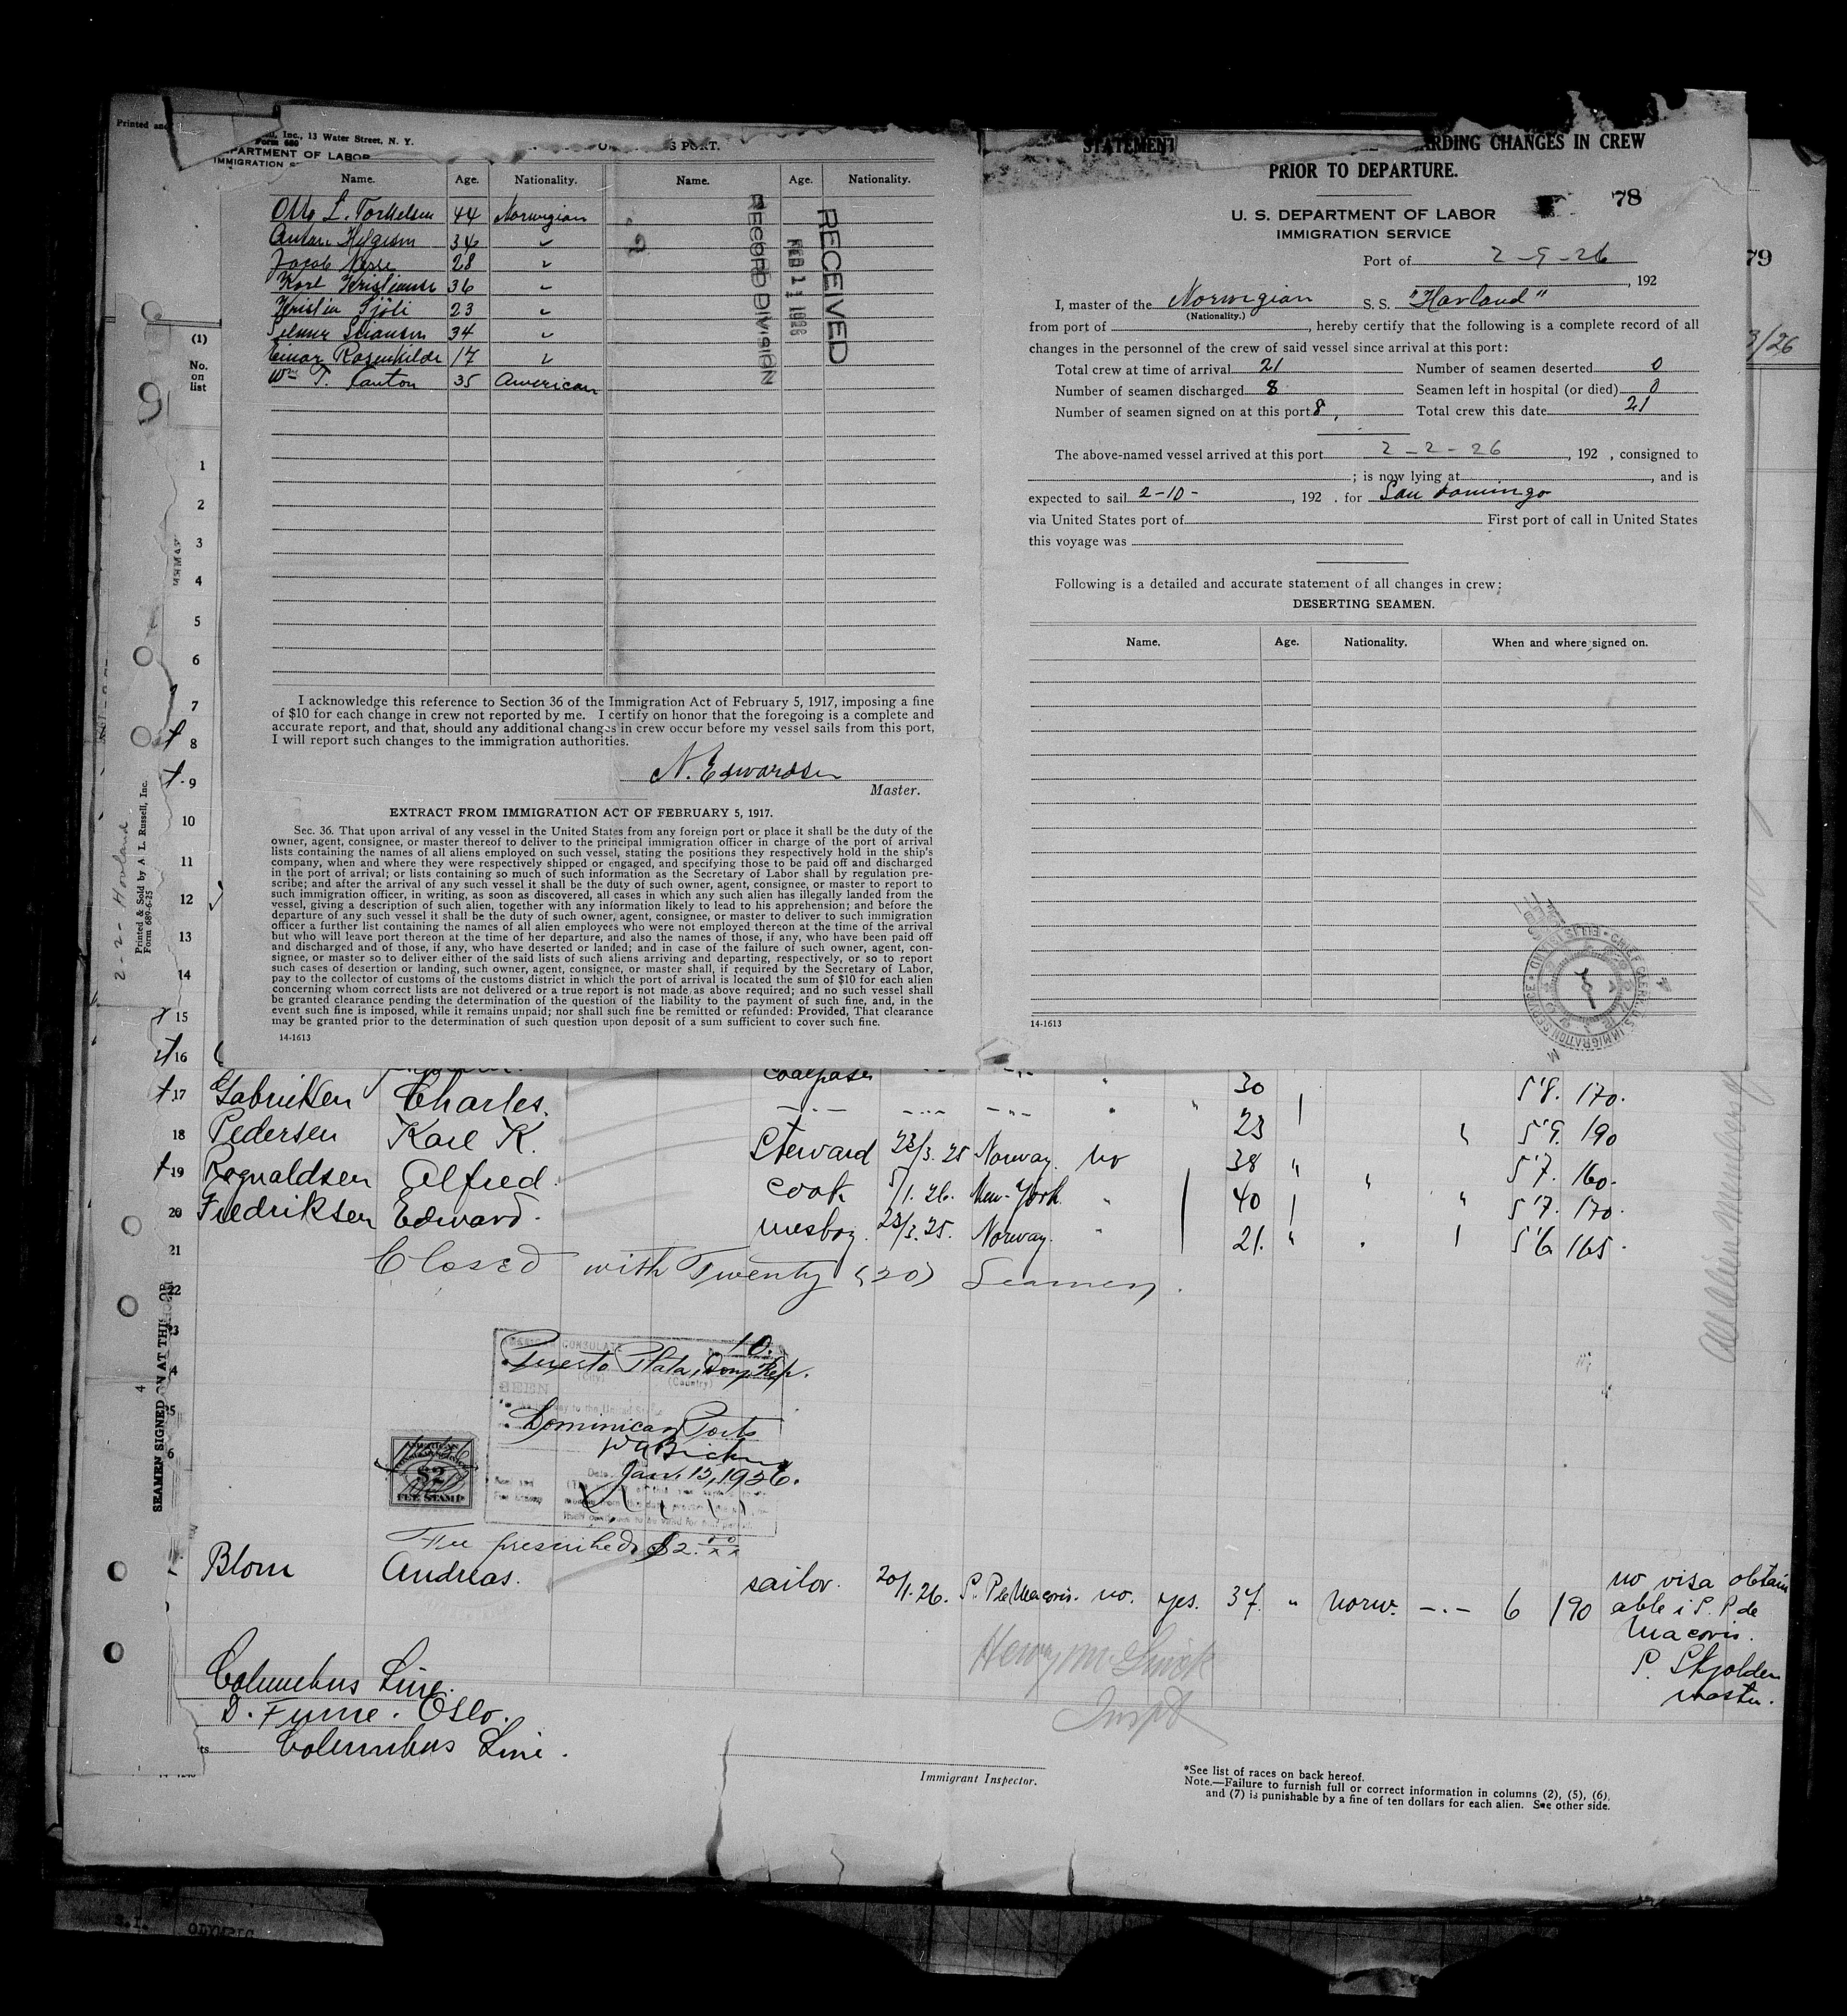 Printed and
Inc., 13 Water Street, N. Y.
Form 689
DEPARTMENT OF LABOR
IMMIGRATION
S PORT.
Name. Age. Nationality. Name. Age. Nationality.
Otto L. Torkelsen 44 Norwegian
34 "
Jacob Nesse 28 "
Karl Kristiansen 36 "
Kristian 23 "
34 "
Einar Rosenkilde 17 "
Wm T. Canton 35 American
RECORD DIVISION
FEB 11 1926
RECEIVED
I acknowledge this reference to Section 36 of the Immigration Act of February 5, 1917, imposing a fine
of $10 for each change in crew not reported by me. I certify on honor that the foregoing is a complete and
accurate report, and that, should any additional changes in crew occur before my vessel sails from this port,
I will report such changes to the immigration authorities.
N. Edwardsen
Master.
EXTRACT FROM IMMIGRATION ACT OF FEBRUARY 5, 1917.
Sec. 36. That upon arrival of any vessel in the United States from any foreign port or place it shall be the duty of the
owner, agent, consignee, or master thereof to deliver to the principal immigration officer in charge of the port of arrival
lists containing the names of all aliens employed on such vessel, stating the positions they respectively hold in the ship's
company, when and where they were respectively shipped or engaged, and specifying those to be paid off and discharged
in the port of arrival; or lists containing so much of such information as the Secretary of Labor shall by regulation pre-
scribe; and after the arrival of any such vessel it shall be the duty of such owner, agent, consignee, or master to report to
such immigration officer, in writing, as soon as discovered, all cases in which any such alien has illegally landed from the
vessel, giving a description of such alien, together with any information likely to lead to his apprehension; and before the
departure of any such vessel it shall be the duty of such owner, agent, consignee, or master to deliver to such immigration
officer a further list containing the names of all alien employees who were not employed thereon at the time of the arrival
but who will leave port thereon at the time of her departure, and also the names of those, if any, who have been paid off
and discharged and of those, if any, who have deserted or landed; and in case of the failure of such owner, agent, con-
signee, or master so to deliver either of the said lists of such aliens arriving and departing, respectively, or so to report
such cases of desertion or landing, such owner, agent, consignee, or master shall, if required by the Secretary of Labor,
pay to the collector of customs of the customs district in which the port of arrival is located the sum of $10 for each alien
concerning whom correct lists are not delivered or a true report is not made as above required; and no such vessel shall
be granted clearance pending the determination of the question of the liability to the payment of such fine, and, in the
event such fine is imposed, while it remains unpaid; nor shall such fine be remitted or refunded: Provided, That clearance
may be granted prior to the determination of such question upon deposit of a sum sufficient to cover such fine.
14-1613
STATEMENT RDING CHANGES IN CREW
PRIOR TO DEPARTURE.
78
U. S. DEPARTMENT OF LABOR
IMMIGRATION SERVICE
Port of 2-9-26
, 192
I, master of the Norwegian S. S. "Havland"
(Nationality.)
from port of , hereby certify that the following is a complete record of all
changes in the personnel of the crew of said vessel since arrival at this port:
Total crew at time of arrival 21 Number of seamen deserted 0
Number of seamen discharged 8 Seamen left in hospital (or died) 0
Number of seamen signed on at this port 8, Total crew this date 21
The above-named vessel arrived at this port 2-2-26, 192 , consigned to
; is now lying at , and is
expected to sail 2-10- , 192 . for San Domingo
via United States port of First port of call in United States
this voyage was
Following is a detailed and accurate statement of all changes in crew:
DESERTING SEAMEN.
Name. Age. Nationality. When and where signed on.
CHIEF CLERK U.S. IMMIGRATION SERVICE ELLIS ISLAND
14-1613
79
3/26
(1)
No.
on
list
1
2
3
4
5
6
7
8
9
10
11
12
13
14
15
16
2-2- Havland
Printed & Sold by A. L. Russell, Inc.
Form 689-6-25
coalpaser 30 5'8. 170.
17 Gabrielsen Charles. 23 5'9. 190
18 Pedersen Karl K. Steward 23/3.25 Norway. no 38 " 5'7. 160.
19 Rognaldsen Alfred. cook 5/1.26. New-York. " 40 5'7. 170.
20 Fredriksen Edward. messboy. 23/3.25. Norway. " 21. " 5'6 165.
21
Closed with Twenty (20) Seamen.
22
SEAMEN SIGNED ON AT THIS
AMERICAN CONSULATE
No. 10.
Puerto Plata, Dom. Rep.
(City) (Country)
SEEN
Dominican Ports
Date Jan. 13, 1926.
AMERICAN
$2
FEE STAMP
Fee prescribed $2.00
Blom Andreas. sailor. 20/1.26. S. P. de Macoris. no. yes. 37. " norw. -.- 6 190
no visa obtain
able i S. P. de
Macoris.
S. Skjolden
master.
Columbus Line.
D. Furne. Oslo.
Columbus Line.
Inspt
Immigrant Inspector.
*See list of races on back hereof.
Note.—Failure to furnish full or correct information in columns (2), (5), (6),
and (7) is punishable by a fine of ten dollars for each alien. See other side.
OLYMPIC